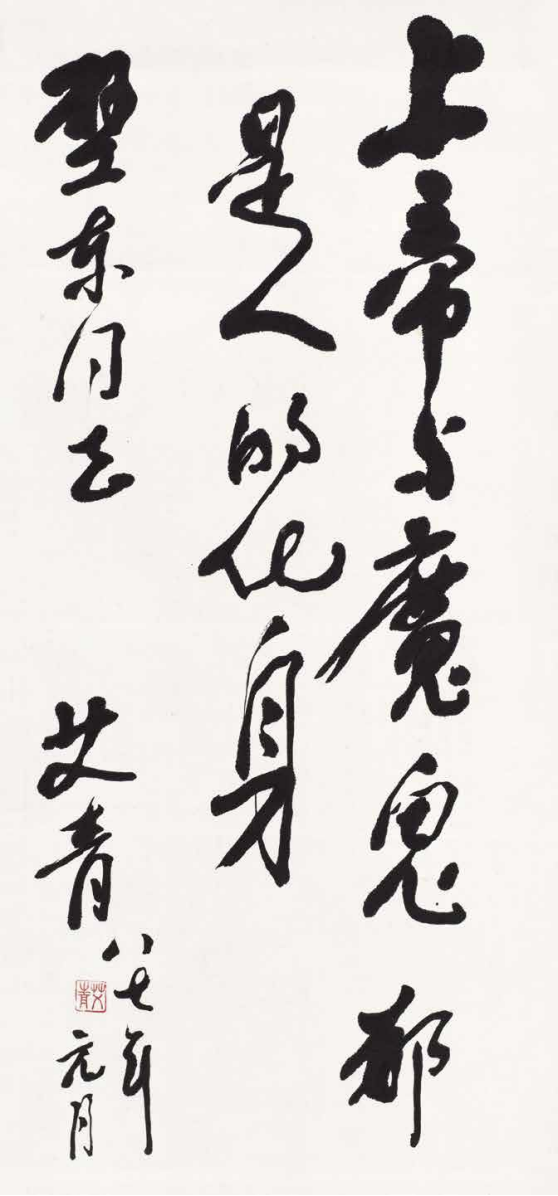 上帝与魔鬼都
是人的化身
东同志
艾青
八七年
元月
艾青